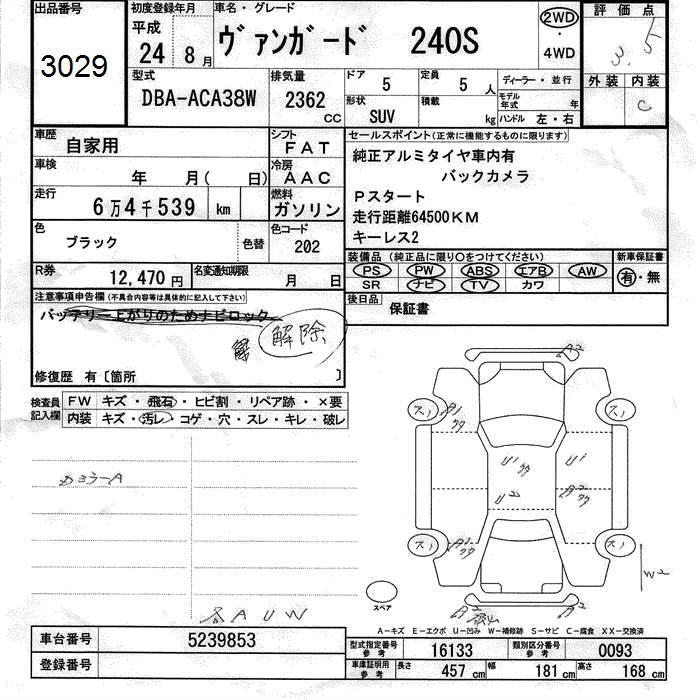 出品番号 初度登録年月 車名・グレード 2WD 評価点
3029 平成 24 8月 ヴァンガード 240S ・ 4WD 3.5
型式 排気量 ドア 定員 ディーラー・並行 外装 内装
DBA-ACA38W 2362 CC 5 5人 モデル年式 年 C
形状 積載 ハンドル 左・右
SUV kg
車歴 自家用 シフト FAT セールスポイント(正常に機能するものに限ります)
車検 年 月( 日) 冷房 AAC 純正アルミタイヤ車内有
バックカメラ
走行 6万4千539 km 燃料 ガソリン Pスタート
走行距離64500KM
色 ブラック 色替 色コード 202 キーレス2
装備品 (純正品に限り○をつけてください) 新車保証書
R券 12,470円 名変通知期限 月 日 PS PW ABS エアB AW 有・無
SR ナビ TV カワ
注意事項申告欄(不具合内容等は具体的に記入して下さい) 後日品 保証書
バッテリー上がりのためナビロック
解除
修復歴 有〔箇所 〕
検査員記入欄 FW キズ・飛石・ヒビ割・リペア跡・×要
内装 キズ・汚レ・コゲ・穴・スレ・キレ・破レ
A2
スリ A1 スリ
U1 U1
カヨラーA U2 A2
スリ A1 スリ
W2
スペア A2
AUW
A-キズ E-エクボ U-凹み W-補修跡 S-サビ C-腐食 XX-交換済
車台番号 5239853 型式指定番号 参考 16133 類別区分番号 参考 0093
登録番号 車庫証明用 参考 長さ 457 cm 幅 181 cm 高さ 168 cm